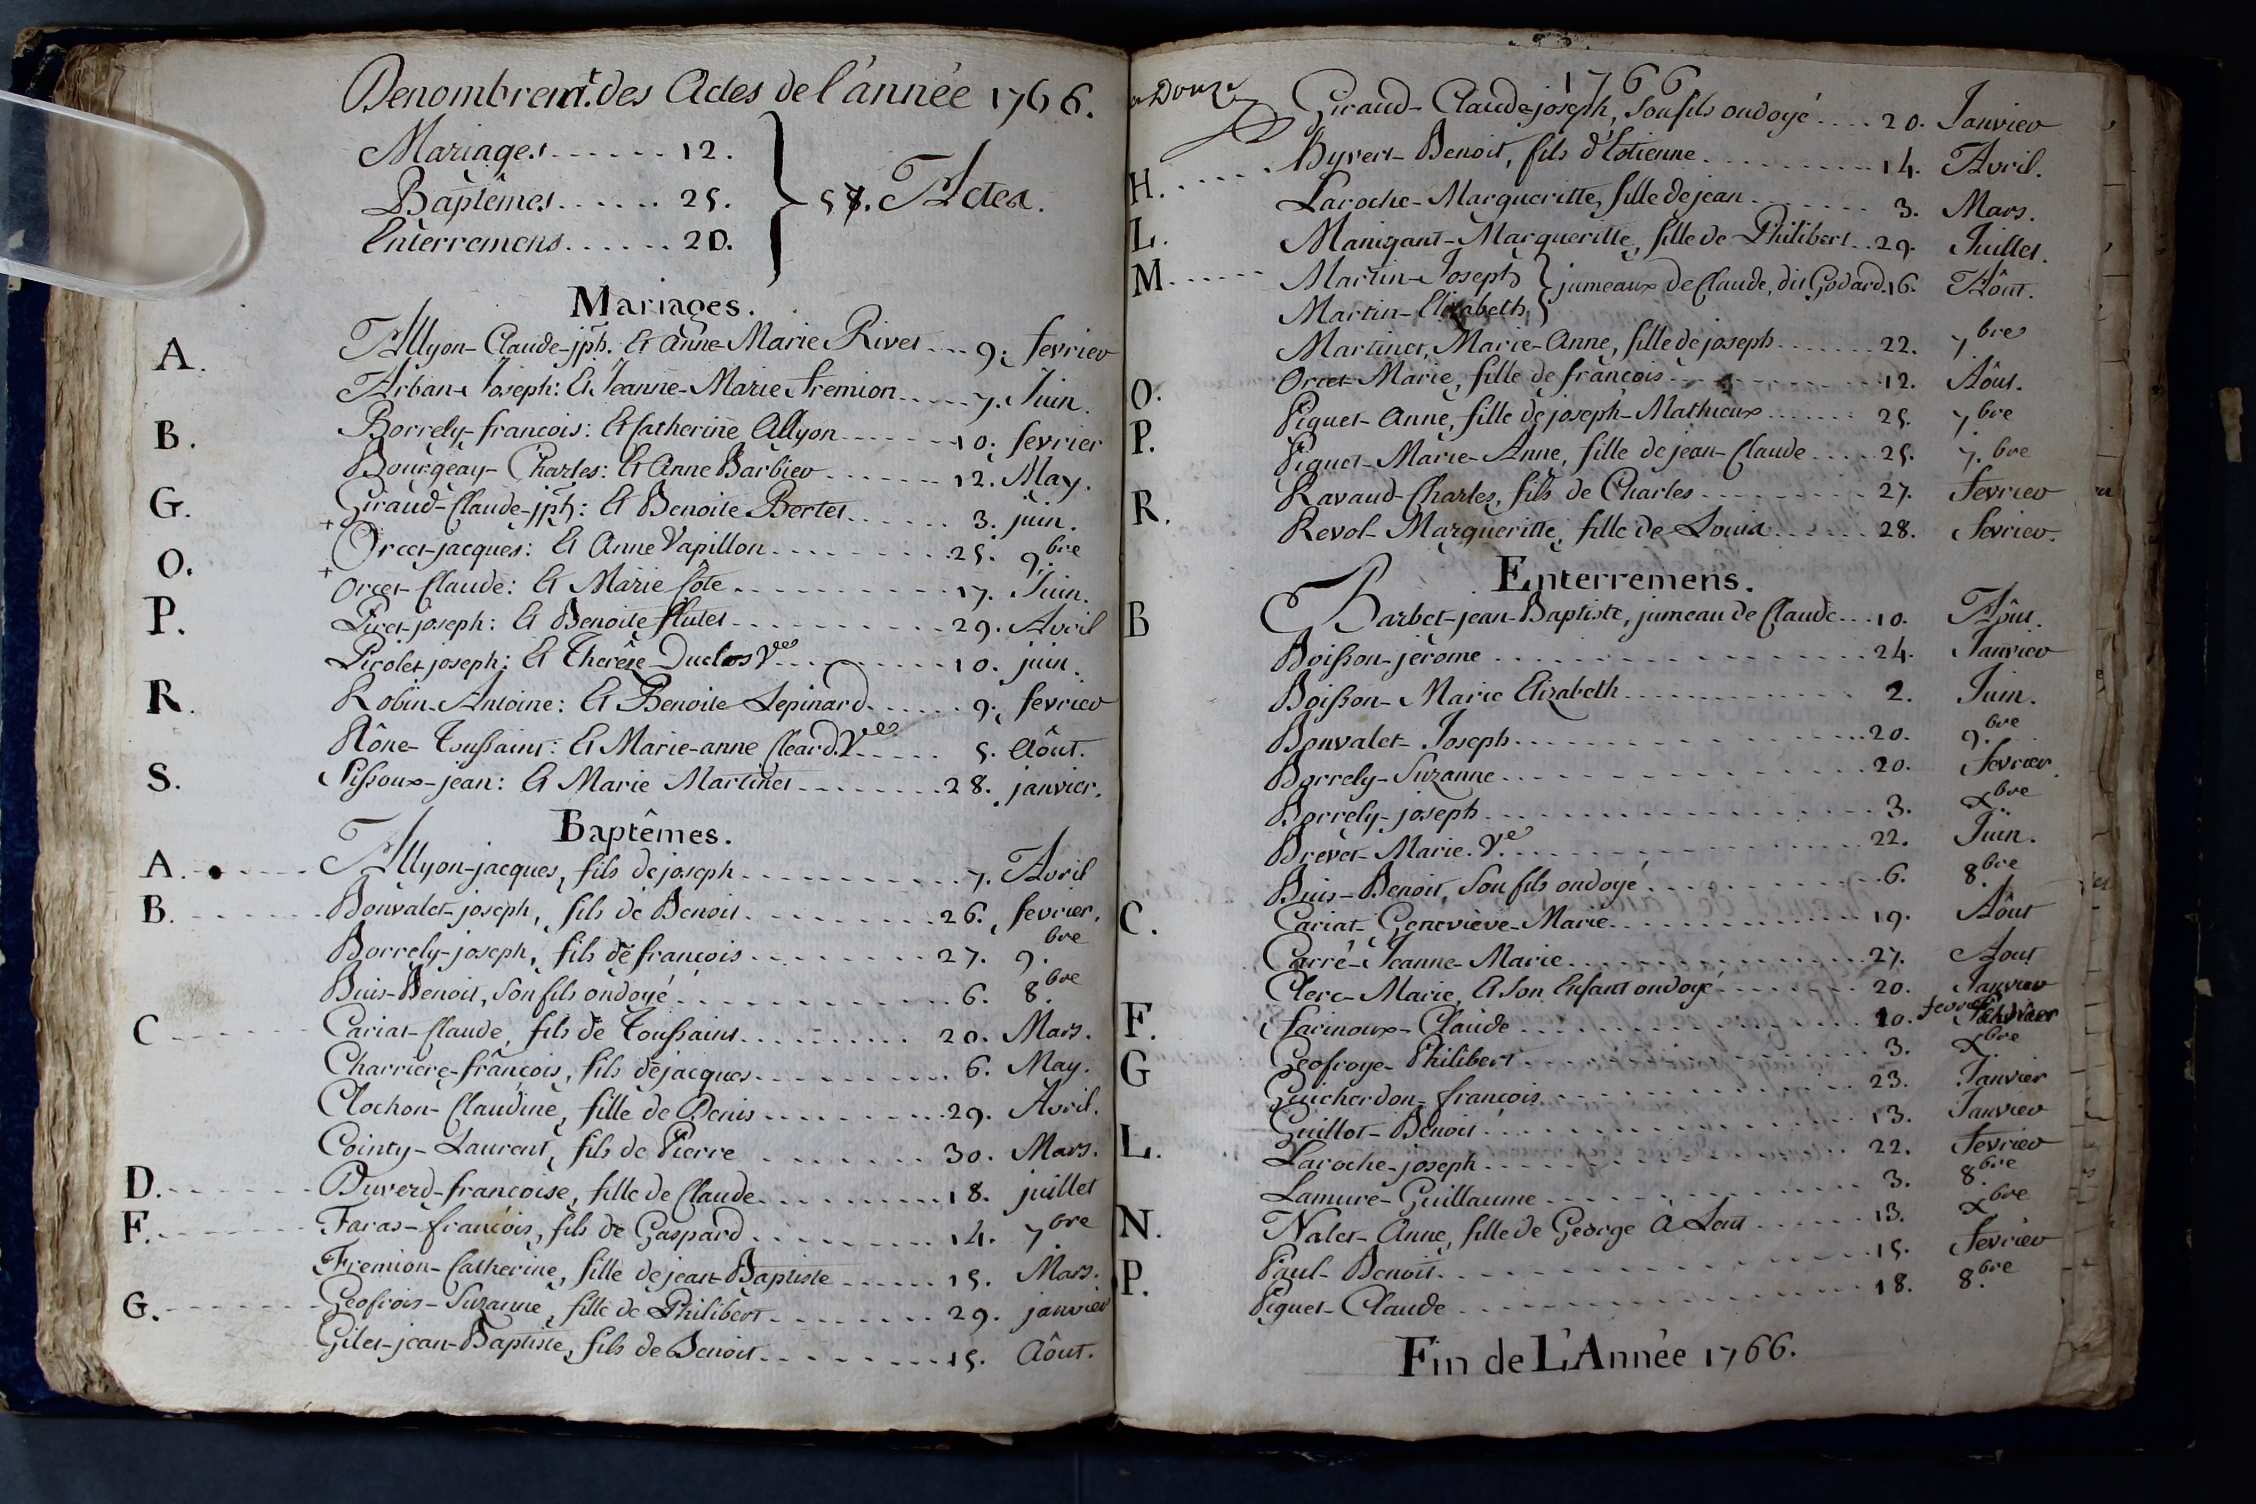 Denombremt. des Actes de l'année 1766.
Mariages ...... 12.
Baptêmes ...... 25.
Enterremens ...... 20.
57. Actes.
Mariages.
A. Allyon-Claude-jph. Et Anne-Marie Rivet ... 9. fevrier
Arban-Joseph: Et Jeanne-Marie Fremion ..... 7. Juin.
B. Borrely-francois: Et Catherine Allyon ....... 10. fevrier
Bourgeay-Charles: Et Anne Barbier ....... 12. May.
G. Giraud-Claude-jph: Et Benoite Bertet ...... 3. juin.
O. + Orcet-jacques: Et Anne Papillon ......... 25. 9.bre
+ Orcet-Claude: Et Marie Côte .......... 17. Juin.
P. Piret-joseph: Et Benoite flutet .......... 29. Avril
Picolet joseph: Et Therêse Duclos Ve ......... 10. juin.
R. Robin-Antoine: Et Benoite Lepinard ...... 9. fevrier
Rône-Toussaint: Et Marie-anne Cleard. Ve ..... 5. Aôut.
S. Sissoux-jean: Et Marie Martinet ........ 28. janvier.
Baptêmes.
A. Allyon-jacques, fils de joseph .......... 7. Avril
B. Bonvalet-joseph, fils de Benoit ......... 26. fevrier.
Borrely-joseph, fils de françois ........ 27. 9.bre
Buis-Benoit, Son fils ondoyé ............ 6. 8.bre
C Cariat-Claude, fils de Toussaint .......... 20. Mars.
Charriere-françois, fils de jacques .......... 6. May.
Clochon-Claudine, fille de Denis ......... 29. Avril.
Cointy-Laurent, fils de Pierre ........ 30. Mars.
D. Duverd-francoise, fille de Claude .......... 18. juillet
F. Faras-françois, fils de Gaspard .......... 14. 7bre
Fremion-Catherine, fille de jean-Baptiste ...... 15. Mars.
G. Geofrois-Suzanne, fille de Philibert ........ 29. janvier
Gilet-jean-Baptiste, fils de Benoit ......... 15. Aôut.
Douze
1766
Giraud-Claude joseph, Son fils ondoyé .... 20. Janvier
H. Hyvert-Benoit, fils d'Etienne ........... 14. Avril.
L. Laroche-Margueritte, fille de jean ....... 3. Mars.
M. Manigant-Margueritte, fille de Philibert .. 29. Juillet.
Martin-Joseph } jumeaux de Claude, dit Godard. 16. Aôut.
Martin-Elizabeth }
Martinet, Marie-Anne, fille de joseph ....... 22. 7bre
O. Orcet-Marie, fille de françois ........... 12. Aôut.
P. Piquet-Anne, fille de joseph-Mathieux ...... 25. 7bre
Piquet-Marie-Anne, fille de jean-Claude .... 25. 7.bre
R. Ravaud-Charles, fils de Charles ......... 27. Fevrier
Revol-Margueritte, fille de Louis ...... 28. Fevrier.
Enterremens.
B Barbet-jean-Baptiste, jumeau de Claude ... 10. Aôut.
Boisson-jerome .................. 24. Janvier
Boisson-Marie Elizabeth ............ 2. Juin.
Bonvalet-Joseph ................. 20. 9.bre
Borrely-Suzanne .................. 20. Fevrier.
Borrely-joseph .................. 3. xbre
Brevet-Marie. Ve ................. 22. Juin.
Buis-Benoit, Son fils ondoyé ........... 6. 8.bre
C. Cariat-Geneviève-Marie ............. 19. Aôut
Carré-Jeanne-Marie .............. 27. Aout
Clerc-Marie, Et Son Enfant ondoyé ....... 20. Janvier
F. Farinoux-Claude ................. 10. fevrier
G Geofroye-Philibert ................ 3. xbre
Guicherdon-françois .............. 23. Janvier
Guillot-Benoit ................. 13. Janvier
L. Laroche-joseph ................. 22. Fevrier
Lamure-Guillaume ............... 3. 8.bre
N. Nalet-Anne, fille de George à Lent ...... 13. xbre
P. Paul-Benoit .................. 15. Fevrier
Piquet-Claude .................. 18. 8.bre
Fin de L'Année 1766.